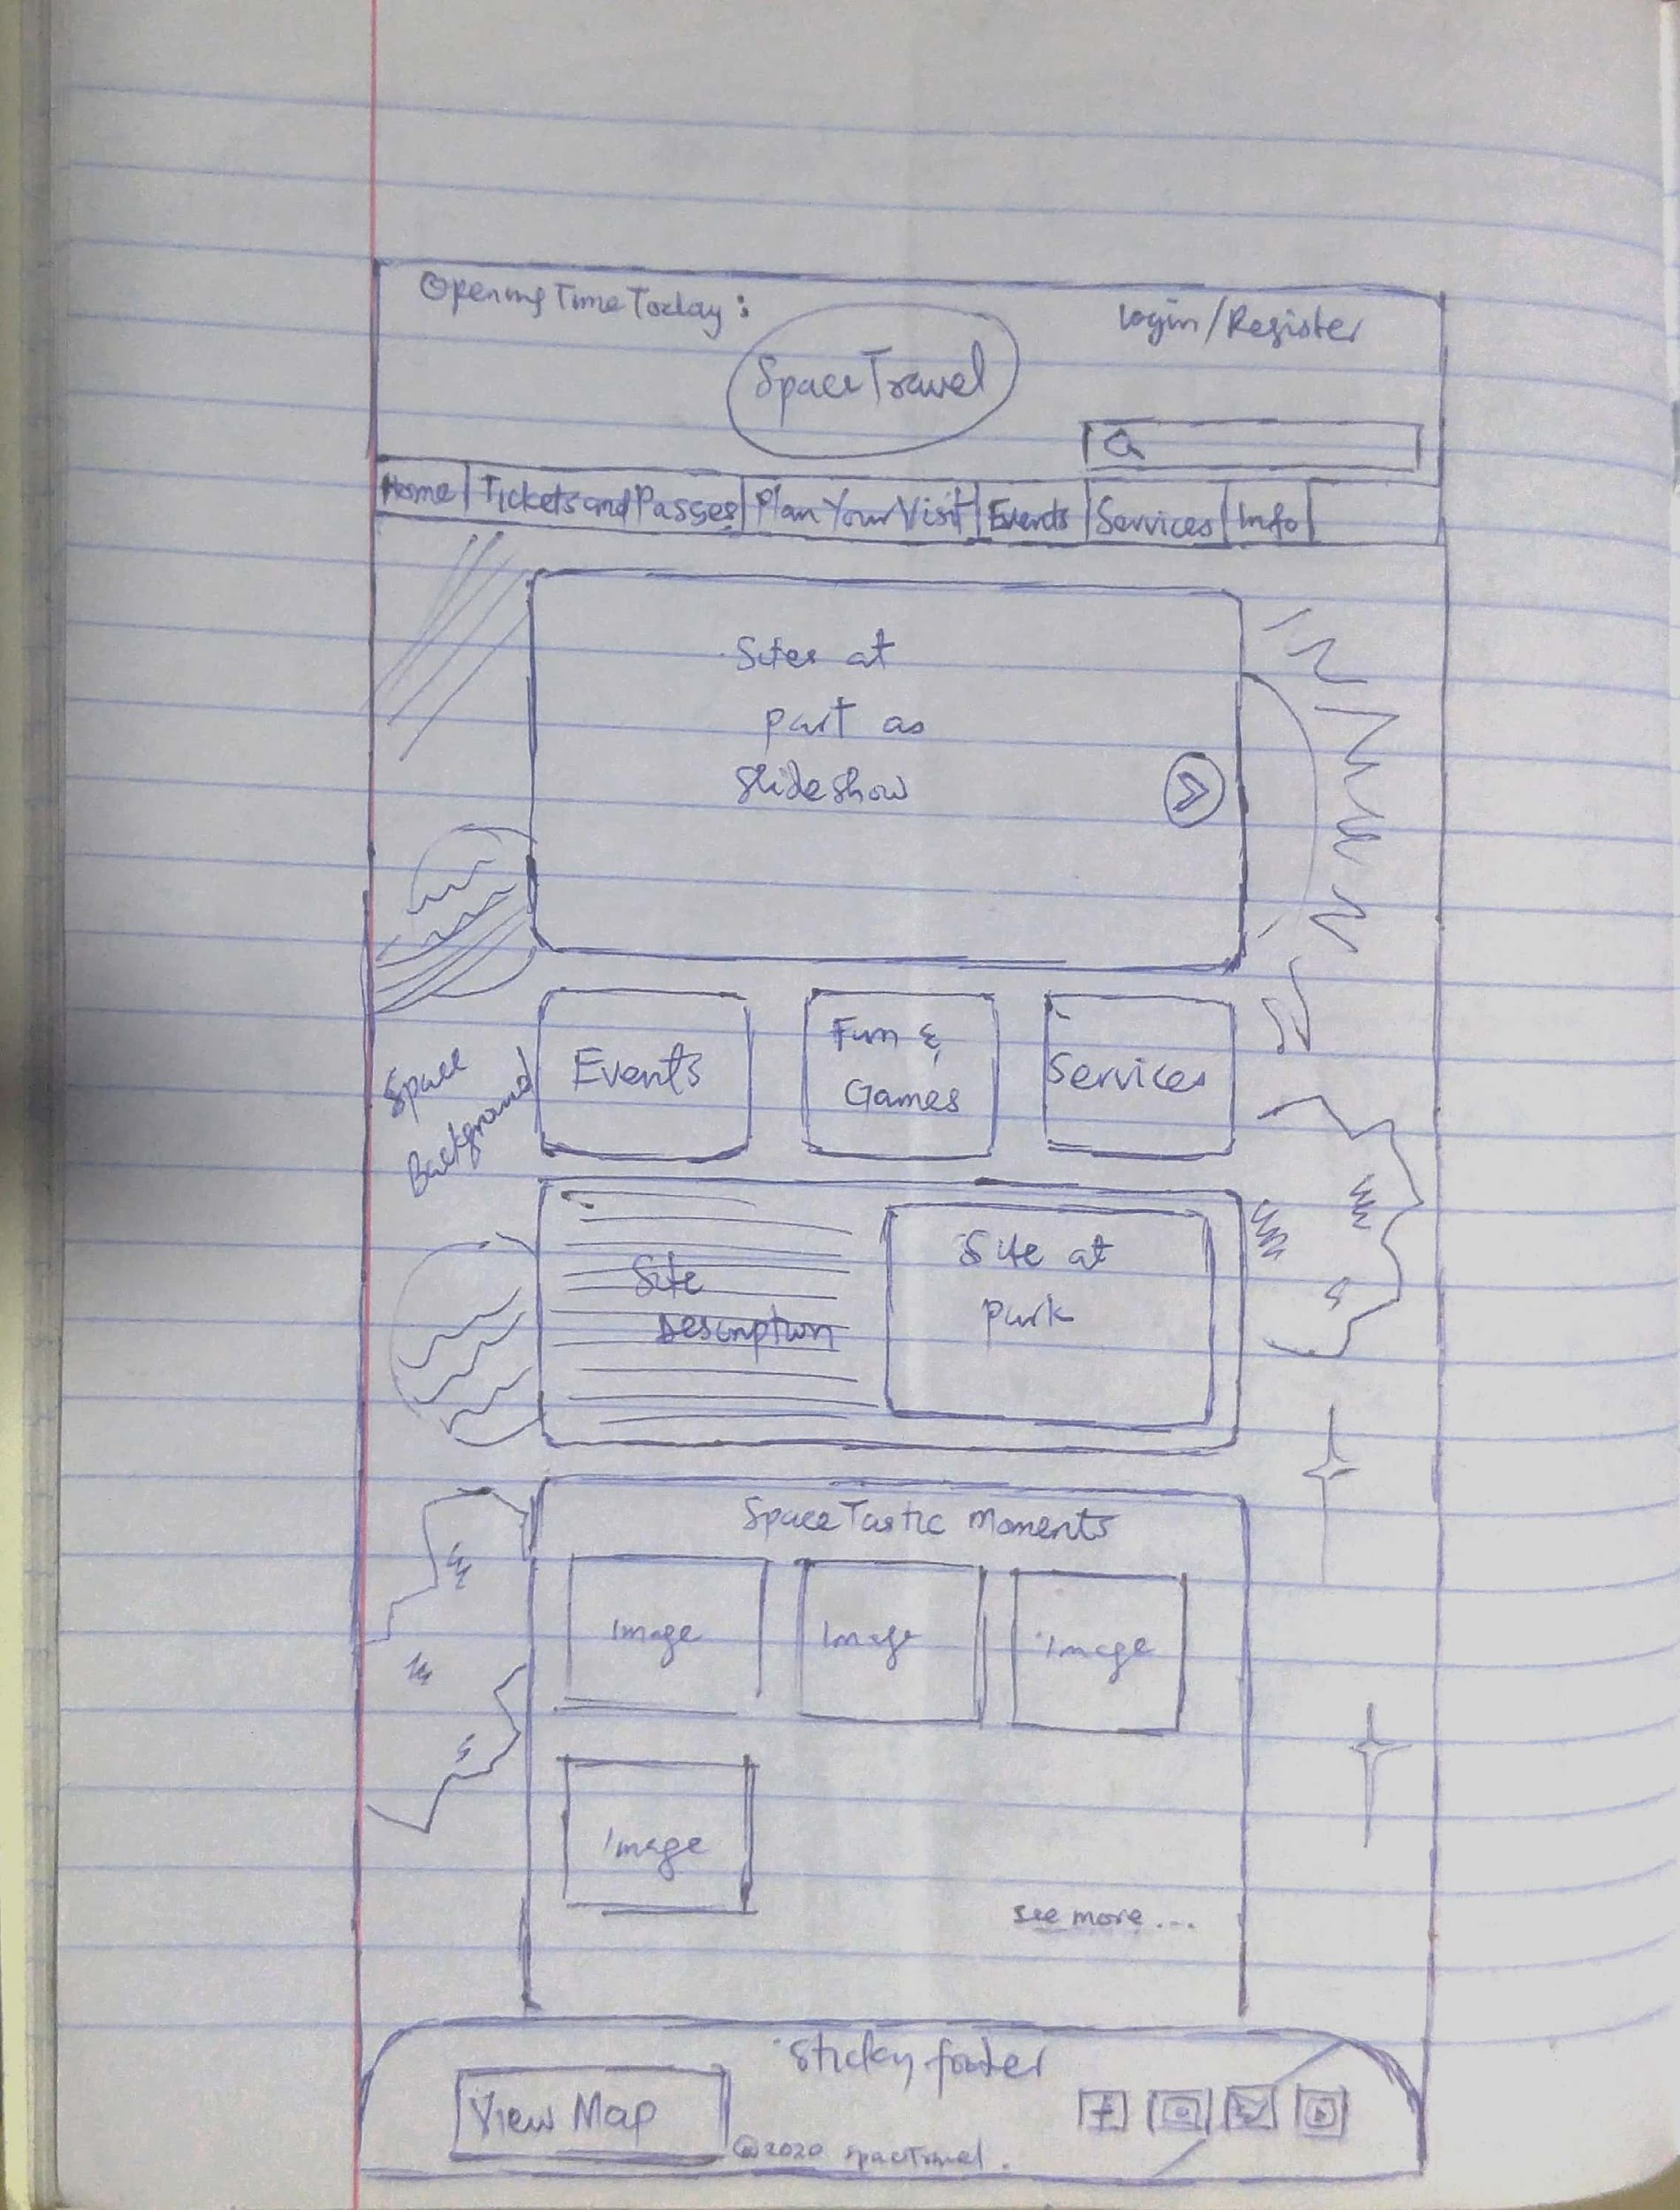 Opening Time Today :
Login/Register
Space Travel
Home Tickets and Passes Plan Your Visit Events Services Info
Sites at
part as
slideshow
Space
Background
Events
Fun &
Games
Services
Site
Description
Site at
park
SpaceTastic Moments
Image Image Image
Image
see more ...
Sticky footer
View Map
©2020 spaceTravel.